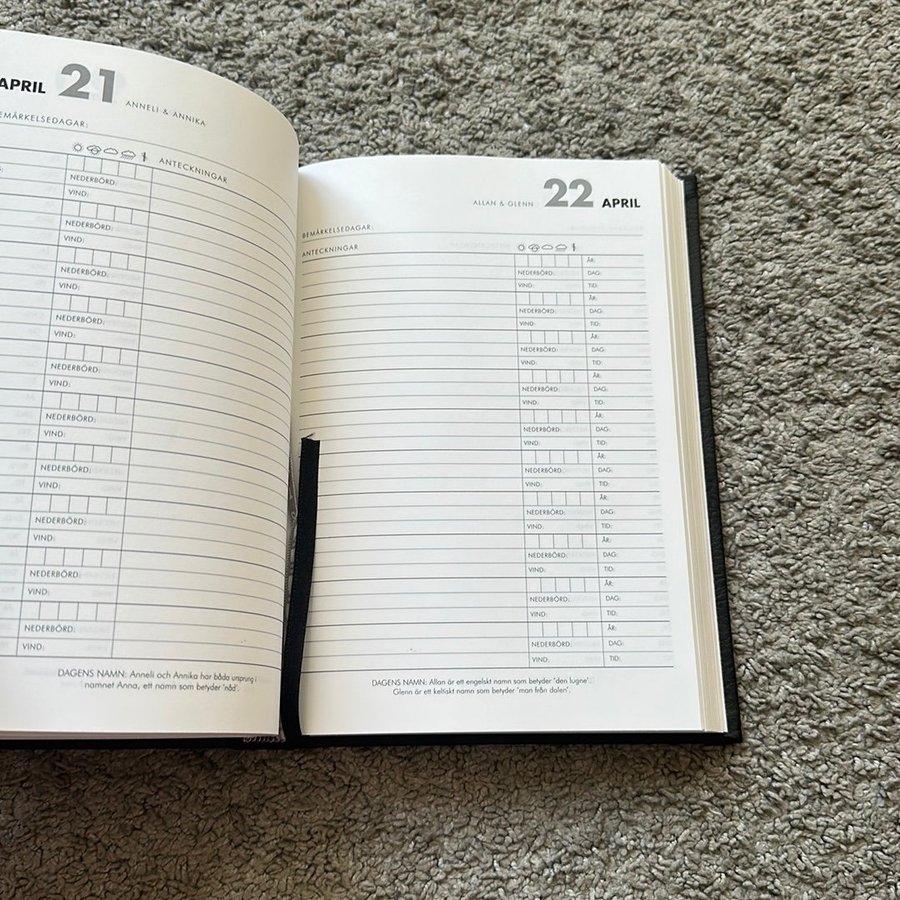 APRIL 21 ANNELI & ANNIKA
EMÄRKELSEDAGAR:
ANTECKNINGAR
NEDERBÖRD:
VIND:
NEDERBÖRD:
VIND:
NEDERBÖRD:
VIND:
NEDERBÖRD:
VIND:
NEDERBÖRD:
VIND:
NEDERBÖRD:
VIND:
NEDERBÖRD:
VIND:
NEDERBÖRD:
VIND:
NEDERBÖRD:
VIND:
NEDERBÖRD:
VIND:
DAGENS NAMN: Anneli och Annika har båda ursprung i
namnet Anna, ett namn som betyder 'nåd'.
ALLAN & GLENN 22 APRIL
BEMÄRKELSEDAGAR:
ANTECKNINGAR
ÅR:
NEDERBÖRD: DAG:
VIND: TID:
ÅR:
NEDERBÖRD: DAG:
VIND: TID:
ÅR:
NEDERBÖRD: DAG:
VIND: TID:
ÅR:
NEDERBÖRD: DAG:
VIND: TID:
ÅR:
NEDERBÖRD: DAG:
VIND: TID:
ÅR:
NEDERBÖRD: DAG:
VIND: TID:
ÅR:
NEDERBÖRD: DAG:
VIND: TID:
ÅR:
NEDERBÖRD: DAG:
VIND: TID:
ÅR:
NEDERBÖRD: DAG:
VIND: TID:
ÅR:
NEDERBÖRD: DAG:
VIND: TID:
DAGENS NAMN: Allan är ett engelskt namn som betyder 'den lugne'.
Glenn är ett keltiskt namn som betyder 'man från dalen'.